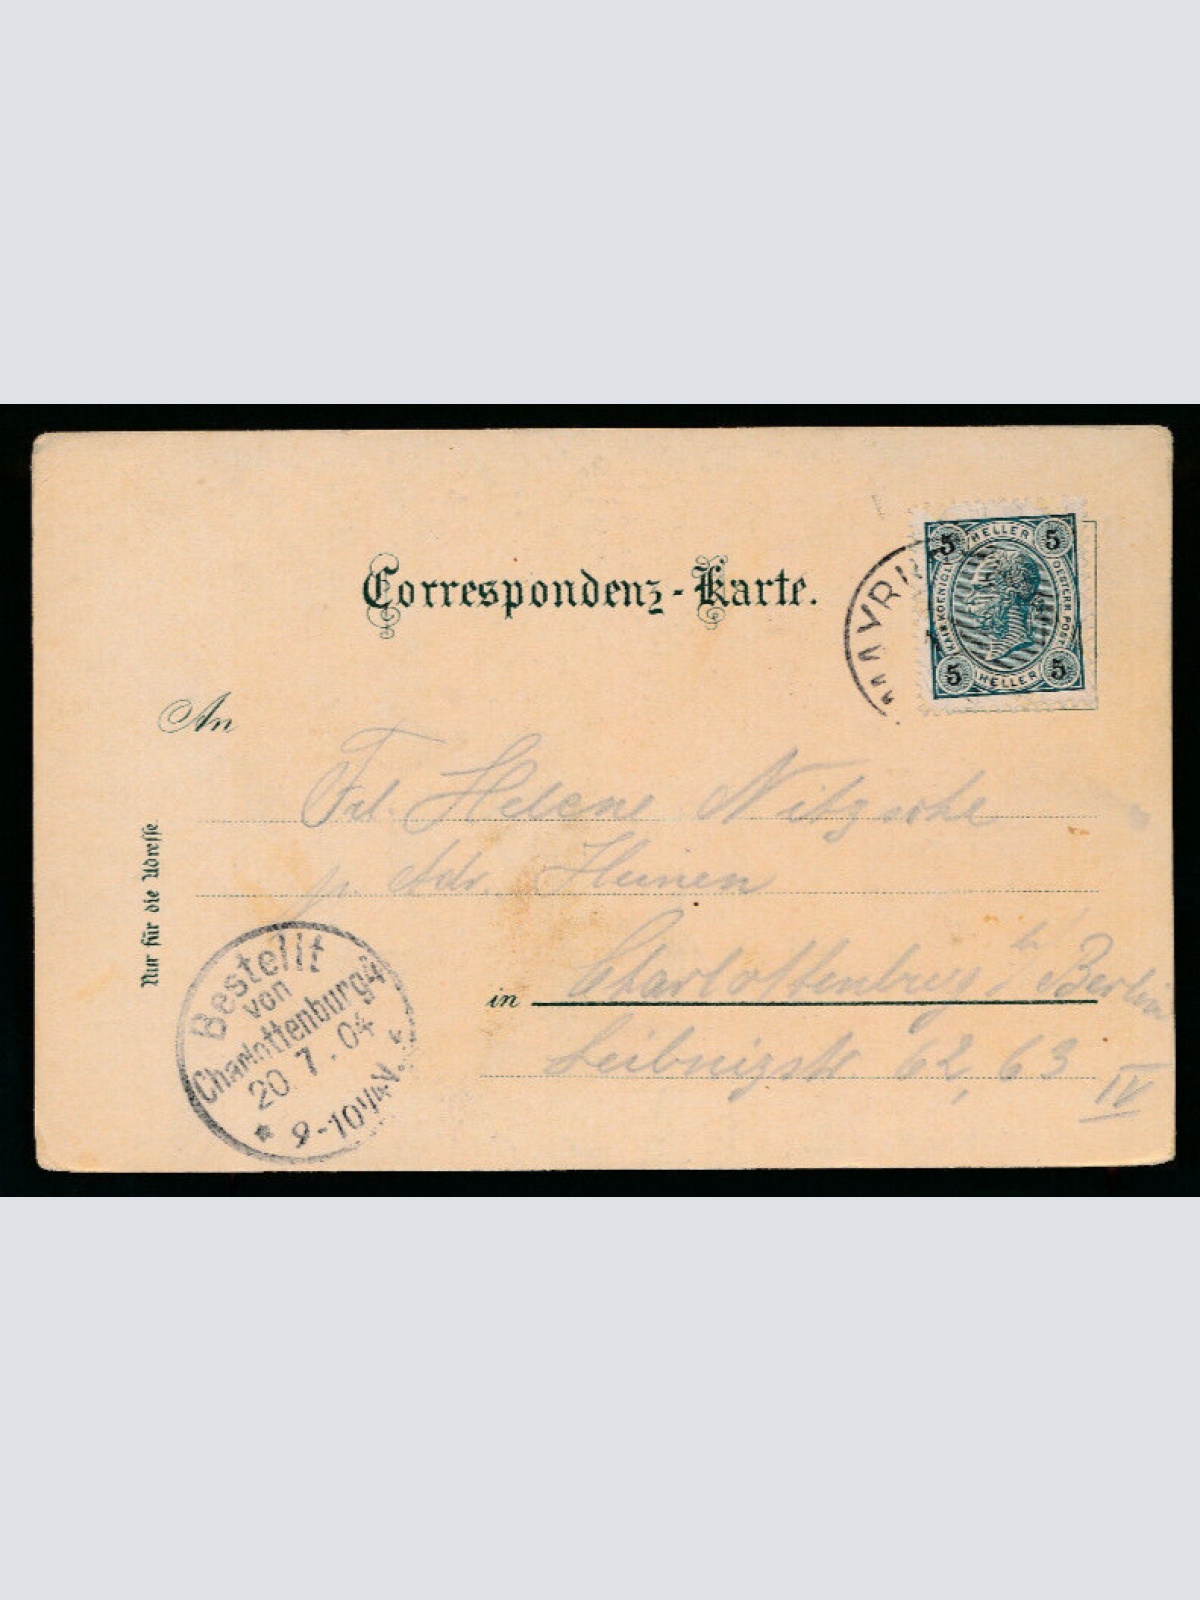 Correspondenz-Karte.
5 HELLER 5
KAIS. KOENIGL.
OESTERR. POST
5 HELLER 5
MAYRH
An
Frl. Helene Nitzsche
p. Adr. Heinen
in Charlottenburg b/ Berlin
Leibnizstr. 62, 63 IV
Nur für die Adresse
Bestellt
von
Charlottenburg 4
20.7.04
* 9-10¼V. *